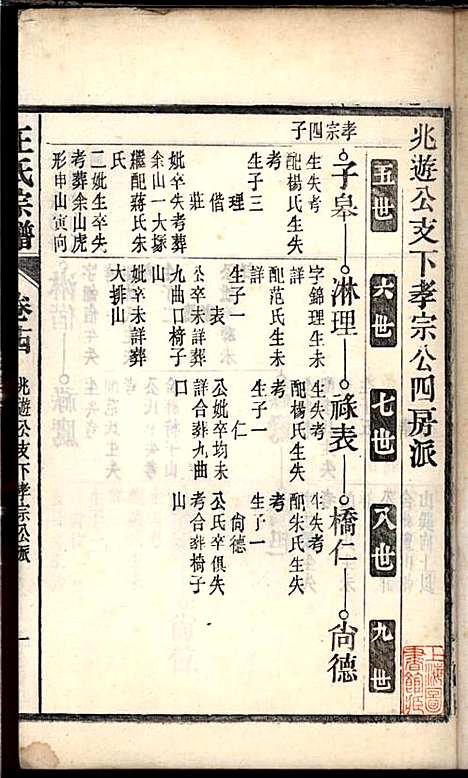 兆遊公支下孝宗公四房派
五世 六世 七世 八世 九世
孝宗四子
子皋 淋理 祿表 橋仁 尚德
生失考
配楊氏生失
考
生子三
理
偕
莊
妣卒失考葬
余山一大塚
繼配蔣氏朱
氏
二妣生卒失
考葬余山虎
形申山寅向
字錦理生未
詳
配范氏生未
詳
生子一
表
公卒未詳葬
九曲口椅子
山
妣卒未詳葬
大排山
生失考
配楊氏生失
考
生子一
仁
公妣卒均未
詳合葬九曲
口
生失考
配朱氏生失
考
生子一
尚德
公氏卒俱失
考合葬椅子
山
王氏宗譜 卷十四 兆遊公支下孝宗公派 一
上海圖書館藏